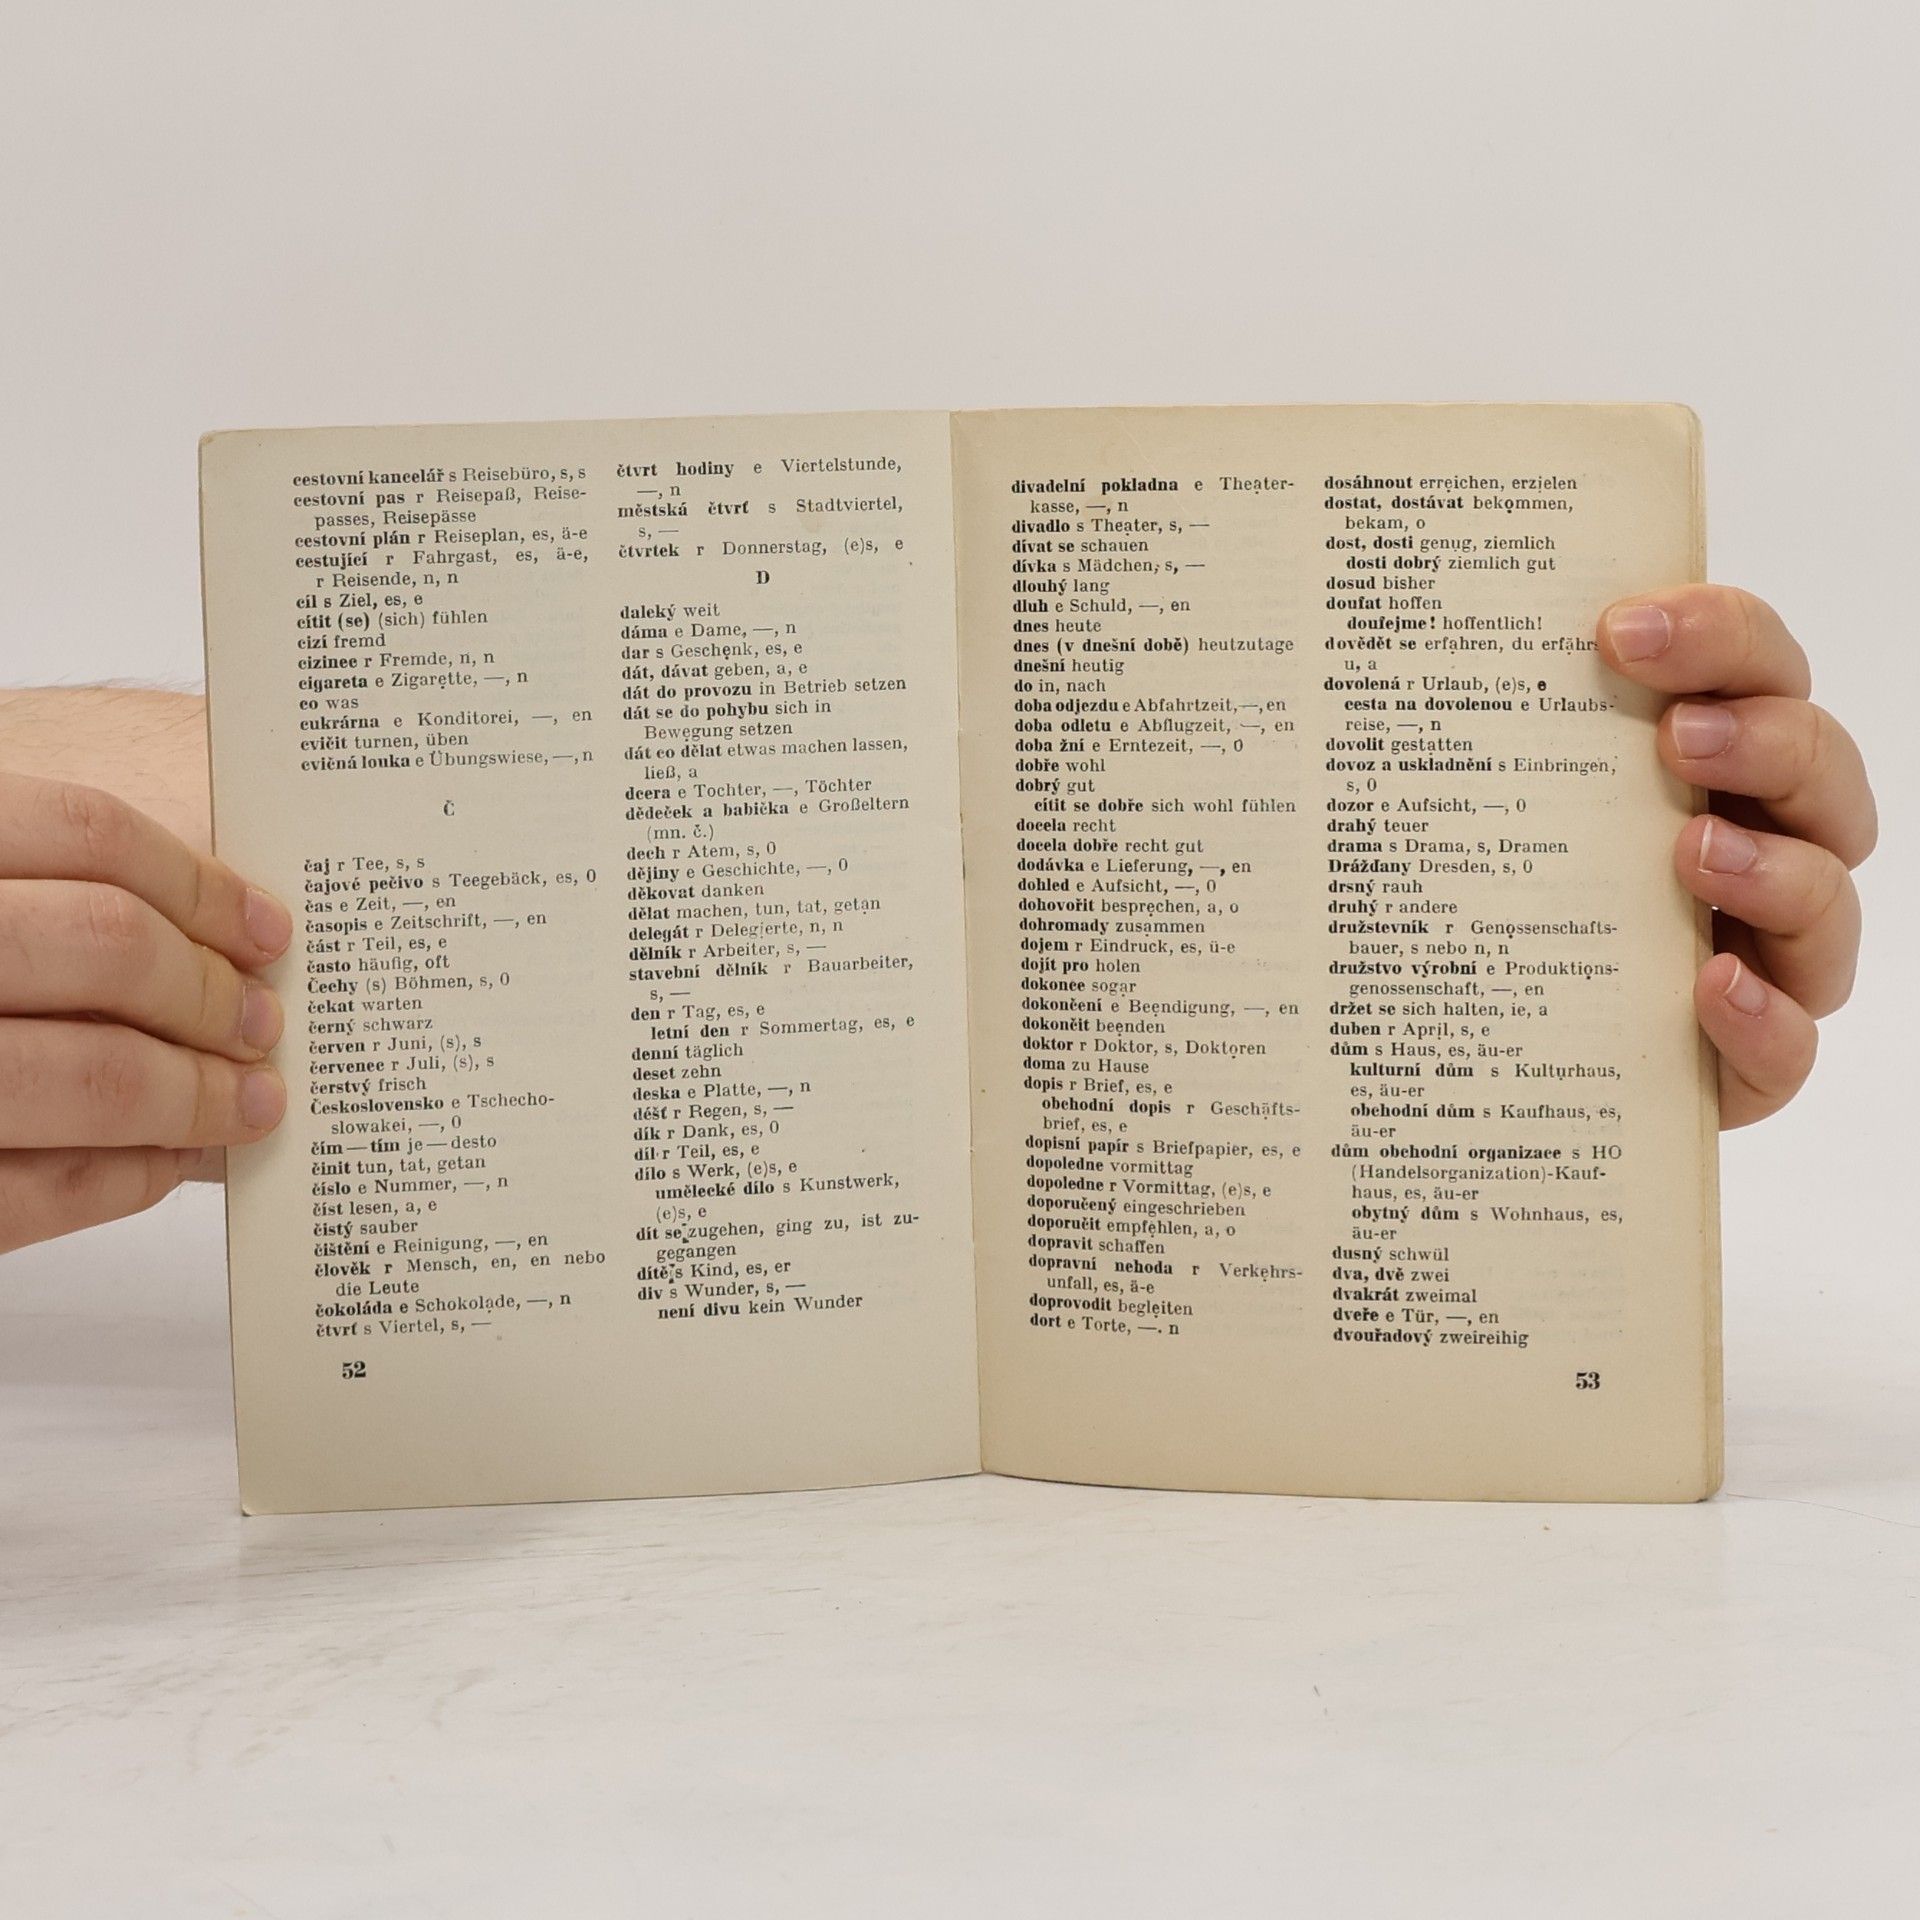 cestovní kancelář s Reisebüro, s, s
cestovní pas r Reisepaß, Reise-
passes, Reisepässe
cestovní plán r Reiseplan, es, ä-e
cestující r Fahrgast, es, ä-e,
r Reisende, n, n
cíl s Ziel, es, e
cítit (se) (sich) fühlen
cizí fremd
cizinec r Fremde, n, n
cigareta e Zigarẹtte, —, n
co was
cukrárna e Konditorei, —, en
cvičit turnen, üben
cvičná louka e Übungswiese, —, n
Č
čaj r Tee, s, s
čajové pečivo s Teegebäck, es, 0
čas e Zeit, —, en
časopis e Zeitschrift, —, en
část r Teil, es, e
často häufig, oft
Čechy (s) Böhmen, s, 0
čekat warten
černý schwarz
červen r Juni, (s), s
červenec r Juli, (s), s
čerstvý frisch
Československo e Tschecho-
slowakei, —, 0
čím — tím je — desto
činit tun, tat, getan
číslo e Nummer, —, n
číst lesen, a, e
čistý sauber
čištění e Reinigung, —, en
člověk r Mensch, en, en nebo
die Leute
čokoláda e Schokolạde, —, n
čtvrť s Viertel, s, —
52
čtvrt hodiny e Viertelstunde,
—, n
městská čtvrť s Stadtviertel,
s, —
čtvrtek r Donnerstag, (e)s, e
D
daleký weit
dáma e Dame, —, n
dar s Geschẹnk, es, e
dát, dávat geben, a, e
dát do provozu in Betrieb setzen
dát se do pohybu sich in
Bewẹgung setzen
dát co dělat etwas machen lassen,
ließ, a
dcera e Tochter, —, Töchter
dědeček a babička e Großeltern
(mn. č.)
dech r Atem, s, 0
dějiny e Geschichte, —, 0
děkovat danken
dělat machen, tun, tat, getạn
delegát r Delegịerte, n, n
dělník r Arbeiter, s, —
stavební dělník r Bauarbeiter,
s, —
den r Tag, es, e
letní den r Sommertag, es, e
denní täglich
deset zehn
deska e Platte, —, n
déšť r Regen, s, —
dík r Dank, es, 0
díl r Teil, es, e
dílo s Werk, (e)s, e
umělecké dílo s Kunstwerk,
(e)s, e
dít se zugehen, ging zu, ist zu-
gegangen
dítě s Kind, es, er
div s Wunder, s, —
není divu kein Wunder
divadelní pokladna e Theạter-
kasse, —, n
divadlo s Theạter, s, —
dívat se schauen
dívka s Mädchen, s, —
dlouhý lang
dluh e Schuld, —, en
dnes heute
dnes (v dnešní době) heutzutage
dnešní heutig
do in, nach
doba odjezdu e Abfahrtzeit, —, en
doba odletu e Abflugzeit, —, en
doba žní e Erntezeit, —, 0
dobře wohl
dobrý gut
cítit se dobře sich wohl fühlen
docela recht
docela dobře recht gut
dodávka e Lieferung, —, en
dohled e Aufsicht, —, 0
dohovořit besprẹchen, a, o
dohromady zusạmmen
dojem r Eindruck, es, ü-e
dojít pro holen
dokonce sogạr
dokončení e Beẹndigung, —, en
dokončit beẹnden
doktor r Doktor, s, Doktọren
doma zu Hause
dopis r Brief, es, e
obchodní dopis r Geschạ̈fts-
brief, es, e
dopisní papír s Briefpapier, es, e
dopoledne vormittag
dopoledne r Vormittag, (e)s, e
doporučený eingeschrieben
doporučit empfẹhlen, a, o
dopravit schaffen
dopravní nehoda r Verkẹhrs-
unfall, es, ä-e
doprovodit beglẹiten
dort e Torte, —. n
dosáhnout errẹichen, erzịelen
dostat, dostávat bekọmmen,
bekam, o
dost, dosti genụg, ziemlich
dosti dobrý ziemlich gut
dosud bisher
doufat hoffen
doufejme! hoffentlich!
dovědět se erfạhren, du erfạ̈hrs
u, a
dovolená r Urlaub, (e)s, e
cesta na dovolenou e Urlaubs-
reise, —, n
dovolit gestạtten
dovoz a uskladnění s Einbringen,
s, 0
dozor e Aufsicht, —, 0
drahý teuer
drama s Drama, s, Dramen
Drážďany Dresden, s, 0
drsný rauh
druhý r andere
družstevník r Genọssenschafts-
bauer, s nebo n, n
družstvo výrobní e Produktiọns-
genossenschaft, —, en
držet se sich halten, ie, a
duben r Aprịl, s, e
dům s Haus, es, äu-er
kulturní dům s Kultụrhaus,
es, äu-er
obchodní dům s Kaufhaus, es,
äu-er
dům obchodní organizace s HO
(Handelsorganization)-Kauf-
haus, es, äu-er
obytný dům s Wohnhaus, es,
äu-er
dusný schwül
dva, dvě zwei
dvakrát zweimal
dveře e Tür, —, en
dvouřadový zweireihig
53